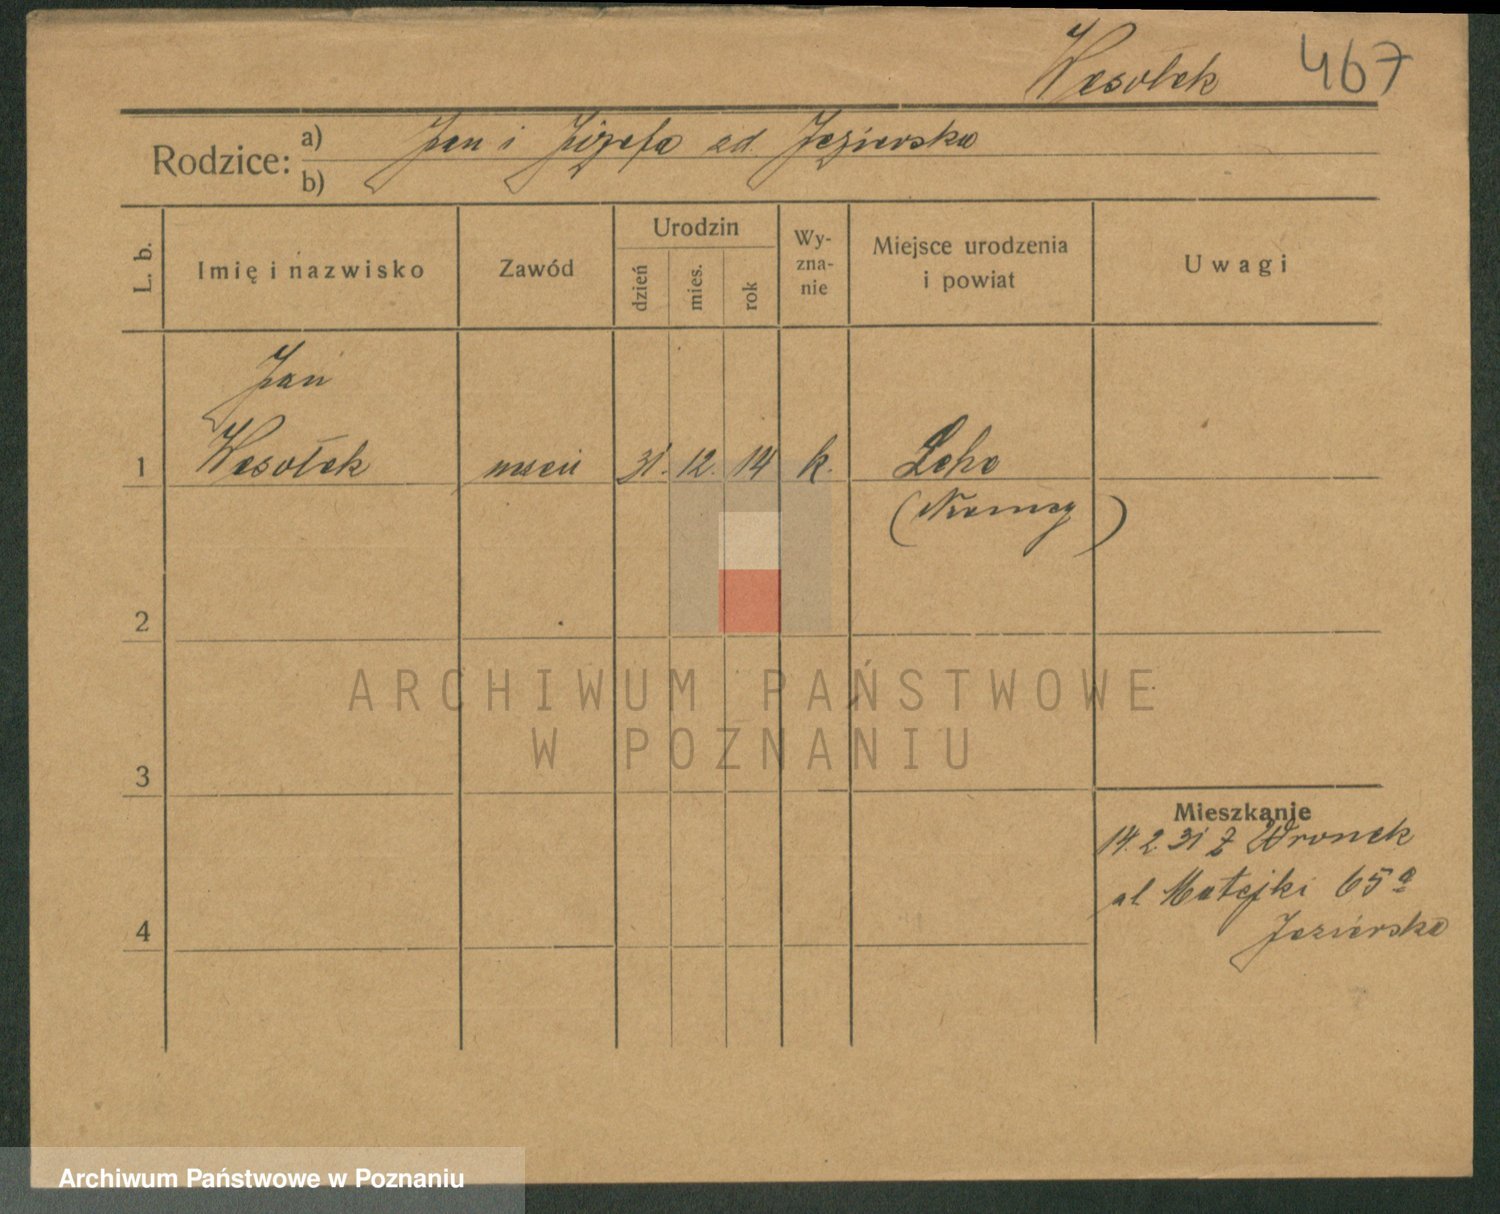 Wesołek 467
Rodzice: a) Jan i Józefa zd. Jezierska
b)
L. b.
Imię i nazwisko
Zawód
Urodzin
dzień
mies.
rok
Wy-
zna-
nie
Miejsce urodzenia
i powiat
Uwagi
Jan
1 Wesołek uczeń 31. 12. 14 k. Lehe
(Niemcy)
2
ARCHIWUM PAŃSTWOWE
W POZNANIU
3
Mieszkanie
14. 2. 31 z Wronek
4 ul. Matejki 65a
Jezierska
Archiwum Państwowe w Poznaniu